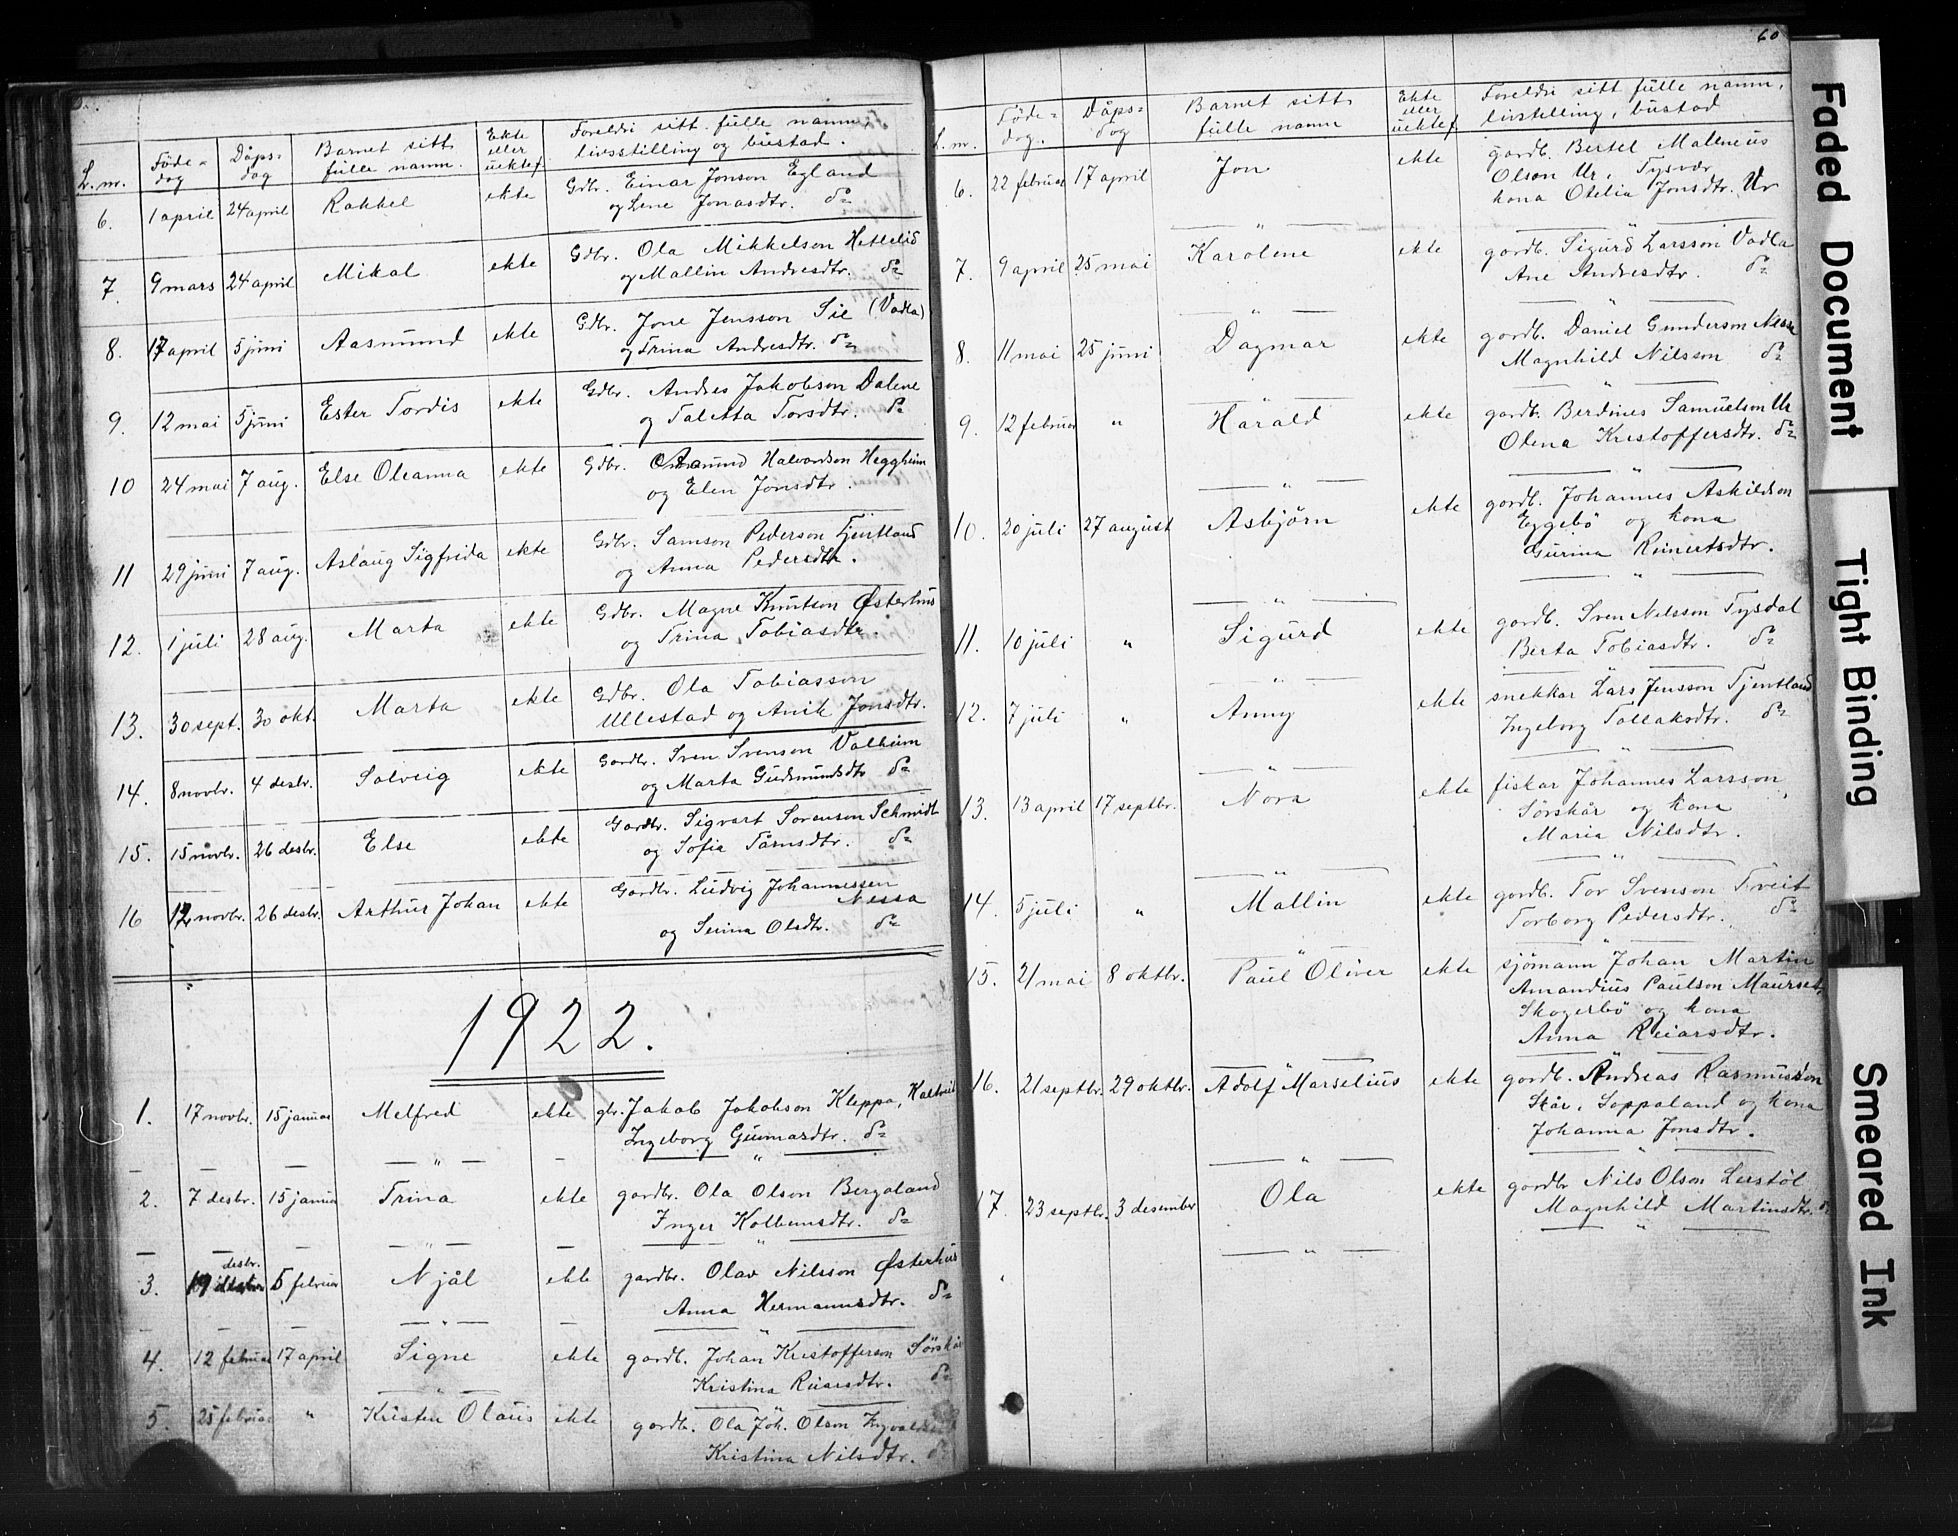 L. nr. Föde-dag Dåps-dag Barnet sitt fulle namn. Ekte eller uektef. Foreldri sitt fulle namn, livsstilling og bustad.
6. 1 april 24 april Rakkel ekte Gdbr. Einar Jonson Egland
og Lene Jonasdtr. do
7. 9 mars 24 april Mikal ekte Gdbr. Ola Mikkelson Hetlelid
og Mallin Andresdtr. do
8. 17 april 5 juni Aasmund ekte Gdbr. Jone Jensson Sie (Vadla)
og Trina Andresdtr. do
9. 12 mai 5 juni Ester Tordis ekte Gdbr. Andres Jakobson Dalene
og Taletta Torsdtr. do
10 24 mai 7 aug. Else Oleanna ekte Gdbr. Halvardson Heggheim
og Elen Jonsdtr.
11 29 juni 7 aug. Aslaug Sigfrida ekte Gdbr. Samson Pederson Tjentland
og Anna Pedersdtr.
12. 1 juli 28 aug. Marta ekte Gdbr. Magne Knutson Østerhus
og Trina Tobiasdtr.
13. 30 sept. 30 okt. Marta ekte Gdbr. Ola Tobiasson
Ullestad og Anik Jonsdtr.
14. 8 novbr. 4 desbr. Solveig ekte Gardbr. Sven Svenson Valheim
og Marta Gudmundsdtr do
15. 15 novbr. 26 desbr. Else ekte Gardbr. Sigvart Sorenson Schmidt
og Sofia Tørrisdtr. do
16 12 novbr. 26 desbr. Arthur Johan ekte Gardbr. Ludvig Johannessen
Nessa
og Serina Olsdtr. do
1922.
1. 17 novbr. 15 januar Melfred ekte gbr. Jakob Jakobson Kleppa,
Ingeborg Gunnarsdtr. do
2. 7 desbr. 15 januar Trina ekte gardbr. Ola Olson Bergaland
Inger Kolbeinsdtr. do
desbr.
3. 19 5 februar Njål ekte gardbr. Olav Nilsson Østerhus
Anna Hermannsdtr. do
4. 12 februar 17 april Signe ekte gardb. Johan Kristofferson Sørskår
Kristina Reiarsdtr. do
5. 25 februar " Kristen Olaus ekte gardb. Ola Joh. Olson
Kristina Nilsdtr. do
60
L. nr. Föde-dag. Dåps-dag Barnet sitt fulle namn Ekte eller uektef. Foreldri sitt fulle namn, livstilling, bustad
6. 22 februar 17 april Jon ekte gardb. Bertel Malleneus
Olson Ur, Tysvær
kona Otelia Jonsdtr. Ur
7. 9 april 25 mai Karolene ekte gardb. Sigurd Larsson Vadla
Ane Andresdtr. do
8. 11 mai 25 juni Dagmar ekte gardb. Daniel Gunderson Nessa
Magnhild Nilsson do
9. 12 februar " Harald ekte gardb. Berdines Samuelson Ur
Olena Kristoffersdtr. do
10. 20 juli 27 august Asbjörn ekte gardb. Johannes Askildson
Eggebö og kona
Gurina Reinertsdtr.
11. 10 juli " Sigurd ekte gardb. Sven Nilsson Tysdal
Berta Tobiasdtr. do
12. 7 juli " Anny ekte snekkar Lars Jensson Tjentland
Ingeborg Tollaksdtr. do
13. 13 april 17 septbr. Nora ekte fiskar Johannes Larsson
Sörskår og kona
Maria Nilsdtr.
14. 5 juli " Mallin ekte gardb. Tor Svenson Tveit
Torborg Pedersdtr. do
15. 21 mai 8 oktbr. Paul Oliver ekte sjömann Johan Martin
Amandius Paulson Maurset,
Skogerbö og kona
Anna Reiarsdtr.
16. 21 septbr. 29 oktbr. Adolf Marselius ekte gardb. Andreas Rasmusson
Skår, Soppaland og kona
Johanna Jonsdtr.
17. 23 septbr. 3 desember Ola ekte gardbr Nils Olson Leistöl
Magnhild Martinsdtr. do
Faded Document
Tight Binding
Smeared Ink